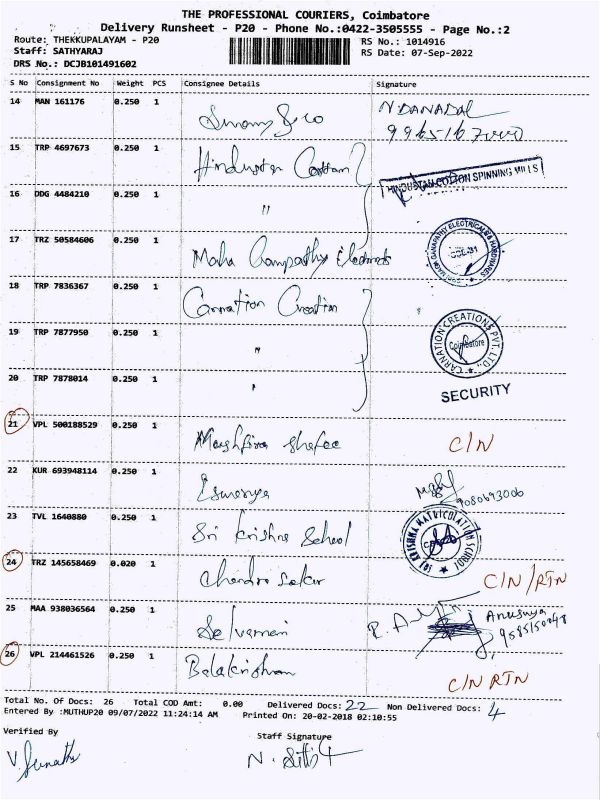 THE PROFESSIONAL COURIERS, Coimbatore
Delivery Runsheet - P20 - Phone No.:0422-3505555 - Page No.:2
Route: THEKKUPALAYAM - P20 RS No.: 1014916
Staff: SATHYARAJ RS Date: 07-Sep-2022
DRS No.: DCJB101491602
S No Consignment No Weight PCS Consignee Details Signature
14 MAN 161176 0.250 1
15 TRP 4697673 0.250 1 Hindustan Cottan HINDUSTAN COTTON SPINNING MILLS
16 DDG 4484210 0.250 1 "
17 TRZ 50584606 0.250 1 Maha Ganapathy Electricals
18 TRP 7836367 0.250 1 Carnation Creation
19 TRP 7877950 0.250 1 " CARNATION CREATIONS PVT. LTD., Coimbatore
20 TRP 7878014 0.250 1 " SECURITY
21 VPL 500188529 0.250 1 shafee C/N
22 KUR 693948114 0.250 1 9080693006
23 TVL 1640880 0.250 1 Sri Krishna School SRI KRISHNA MATRICULATION SCHOOL
24 TRZ 145658469 0.020 1 Chandra Sekar C/N/RTN
25 MAA 938036564 0.250 1 Selvamani Anusuya
26 VPL 214461526 0.250 1 Balakrishnan C/N RTN
Total No. Of Docs: 26 Total COD Amt: 0.00 Delivered Docs: 22 Non Delivered Docs: 4
Entered By :MUTHUP20 09/07/2022 11:24:14 AM Printed On: 20-02-2018 02:10:55
Verified By Staff Signature